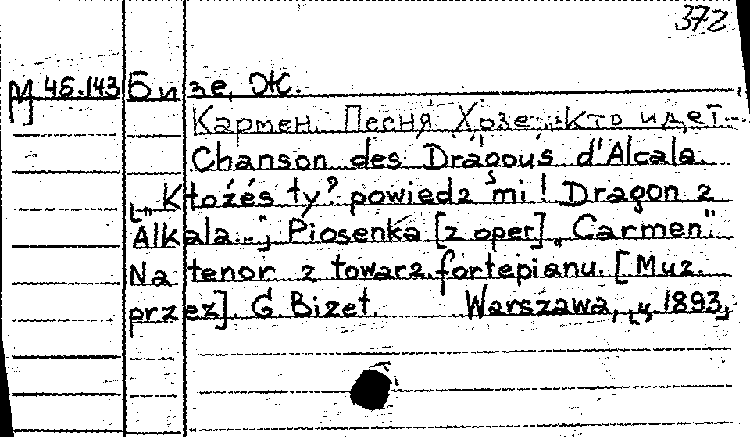 372
М 46.143 Бизе, Ж.
Кармен. Песня Хозе: "Кто идет...
Chanson des Dragous d'Alcala.
[„Któżeś ty? powiedz mi! Dragon z
Alkala...; Piosenka [z oper] „Carmen".
Na tenor z towarz. fortepianu. [Muz.
przez]. G Bizet. Warszawa, 1893,